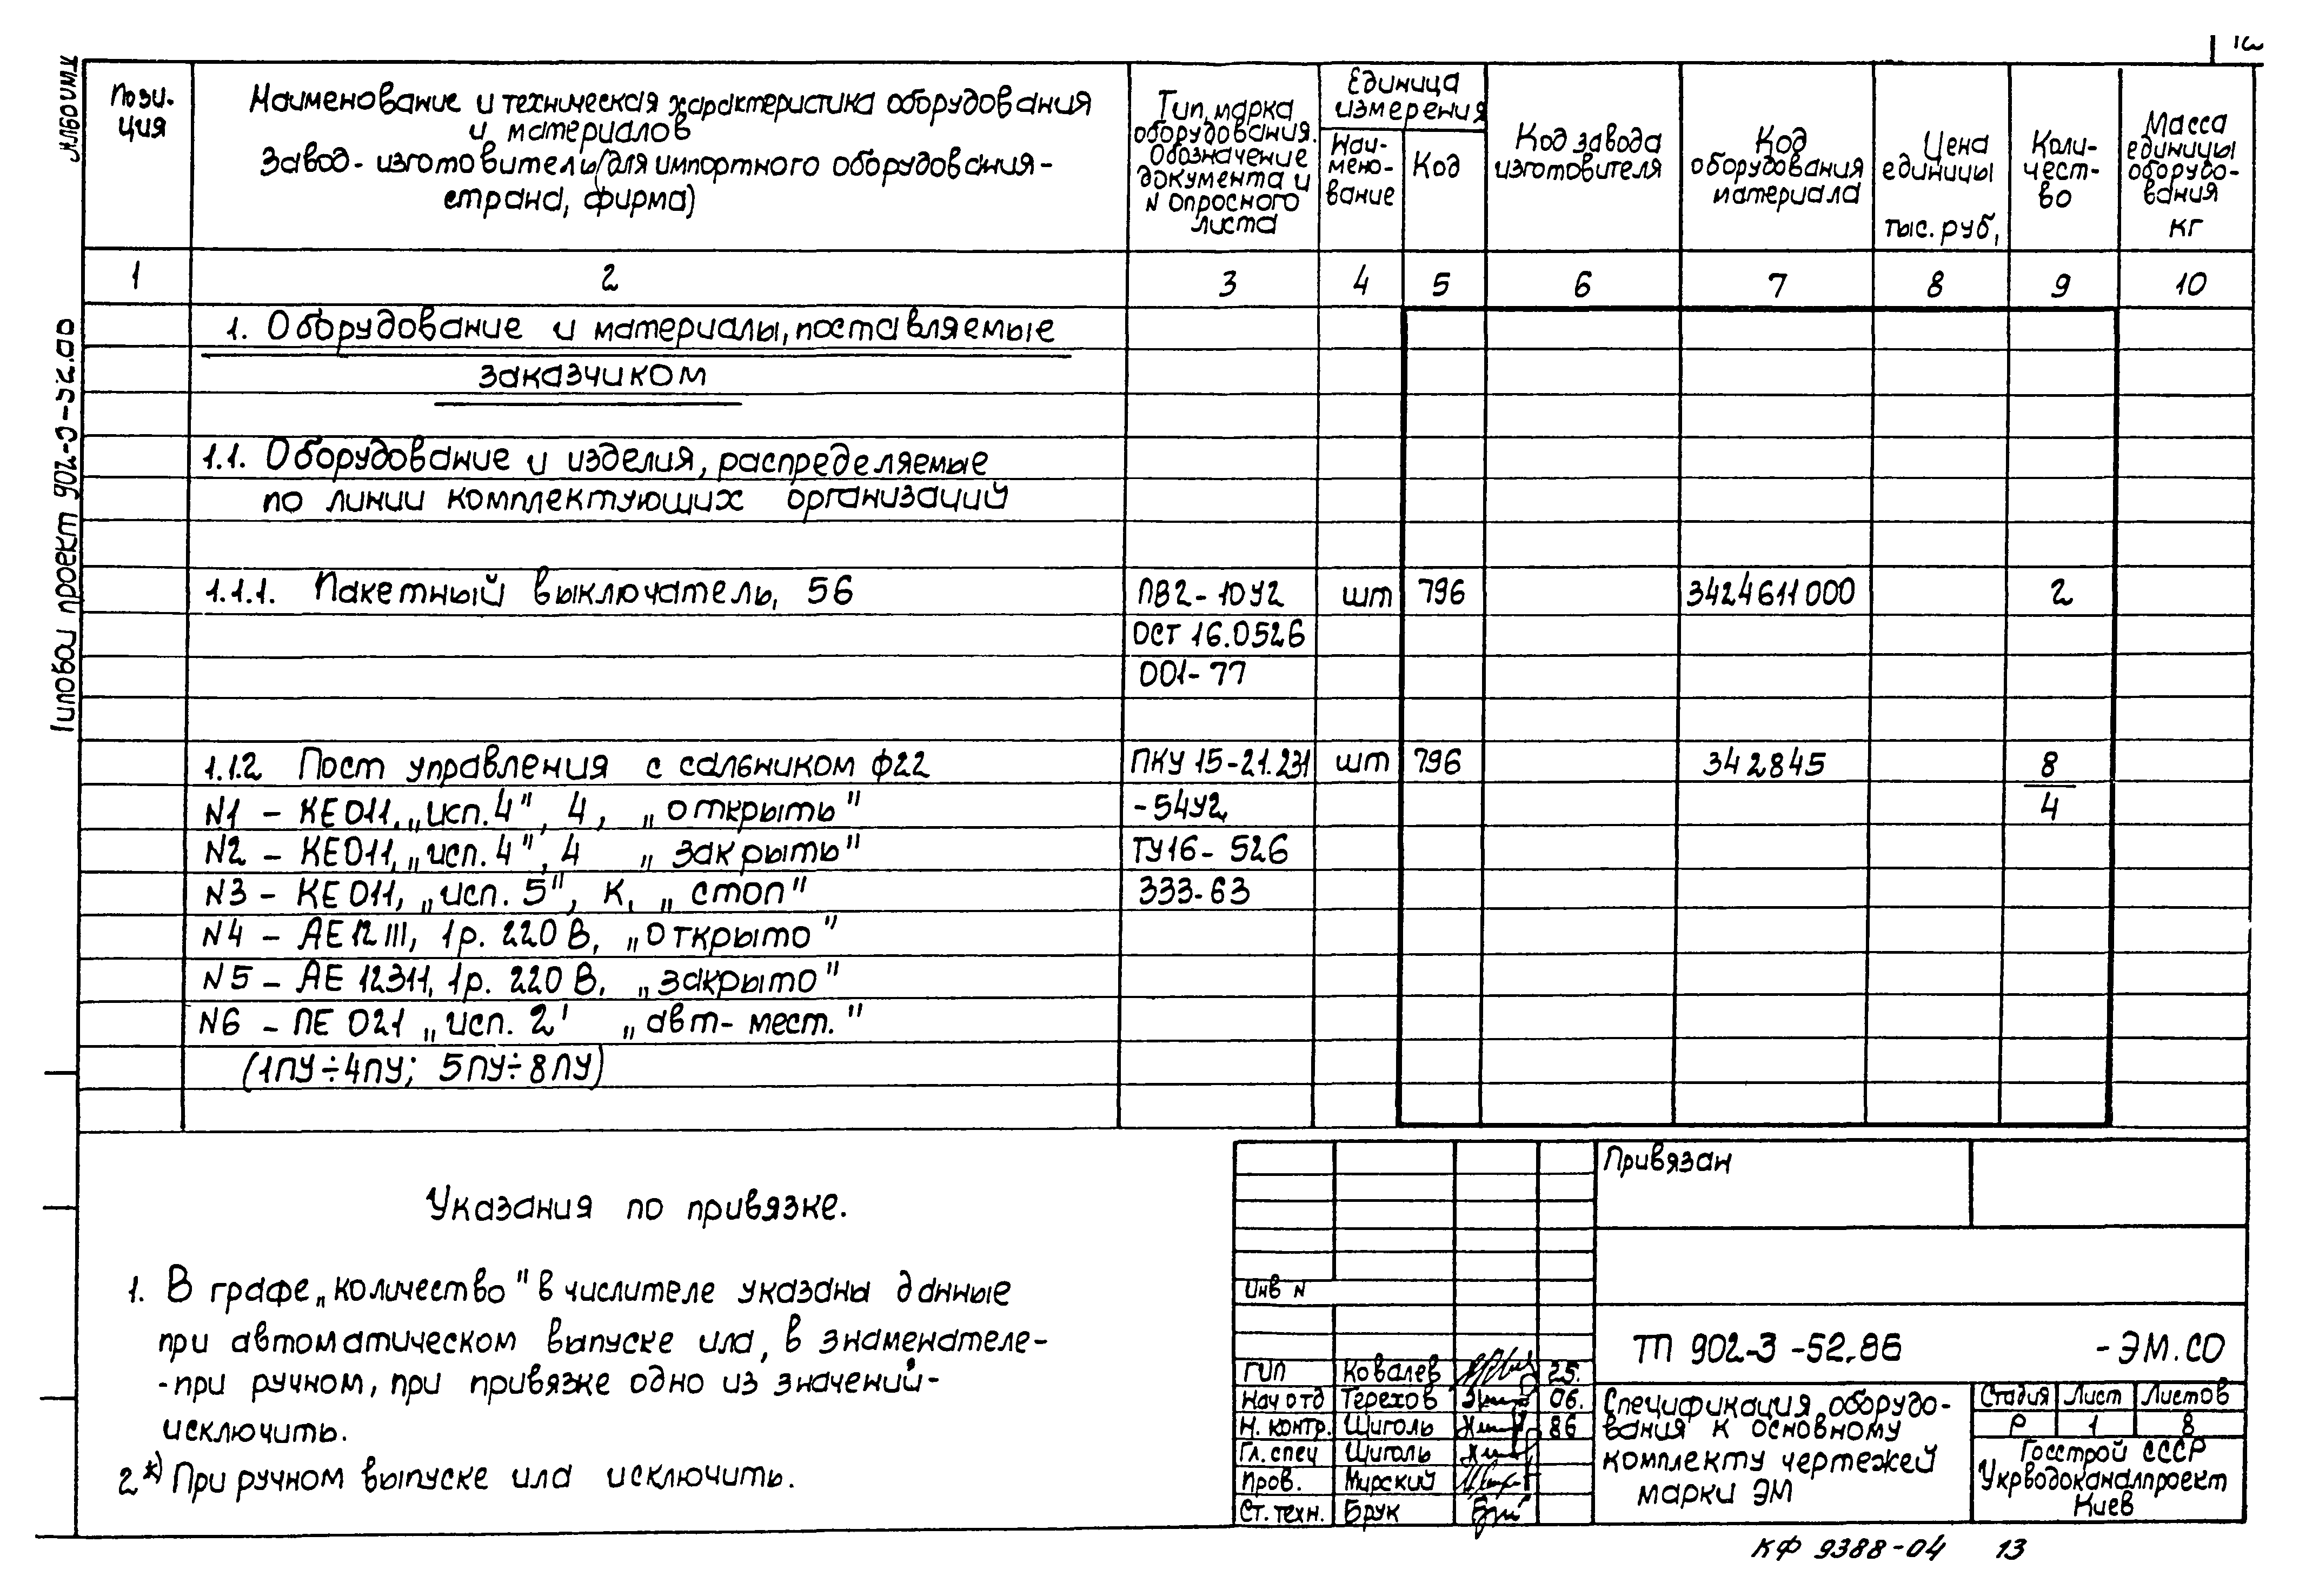 Пози-
ция
Наименование и техническая характеристика оборудования
и материалов
Завод-изготовитель (для импортного оборудования-
страна, фирма)
Тип, марка
оборудования.
Обозначение
документа и
N опросного
листа
Единица
измерения
Наи-
мено-
вание
Код
Код завода
изготовителя
Код
оборудования
материала
Цена
единицы
тыс. руб,
Коли-
чест-
во
Масса
единицы
оборудо-
вания
кг
1 2 3 4 5 6 7 8 9 10
1. Оборудование и материалы, поставляемые
заказчиком
1.1. Оборудование и изделия, распределяемые
по линии комплектующих организаций
1.1.1. Пакетный выключатель, 56 ПВ2-10У2 шт 796 3424611000 2
ОСТ 16.0526
001-77
1.1.2 Пост управления с сальником ф22 ПКУ 15-21.231 шт 796 342845 8
N1 - КЕ011, „исп. 4", 4, „открыть" -54У2, 4
N2 - КЕ011, „исп. 4", 4 „закрыть" ТУ16-526
N3 - КЕ011, „исп. 5", К, „стоп" 333-63
N4 - АЕ12111, 1р. 220 В, „открыто"
N5 - АЕ 12311, 1р. 220 В, „закрыто"
N6 - ПЕ 021 „исп. 2' „авт-мест."
(1ПУ÷4ПУ; 5ПУ÷8ПУ)
Указания по привязке.
1. В графе „количество" в числителе указаны данные
при автоматическом выпуске ила, в знаменателе-
-при ручном, при привязке одно из значений-
исключить.
2*) При ручном выпуске ила исключить.
Привязан
Инв N
ТП 902-3-52.86 -ЭМ.СО
ГИП Ковалев 25.
Нач отд Терехов 06.
Н. контр. Щиголь 86
Гл. спец Щиголь
Пров. Мирский
Ст. техн. Брук
Спецификация оборудо-
вания к основному
комплекту чертежей
марки ЭМ
Стадия Лист Листов
Р 1 8
Госстрой СССР
Укрводоканалпроект
Киев
КФ 9388-04 13
Типовой проект 902-3-52.86